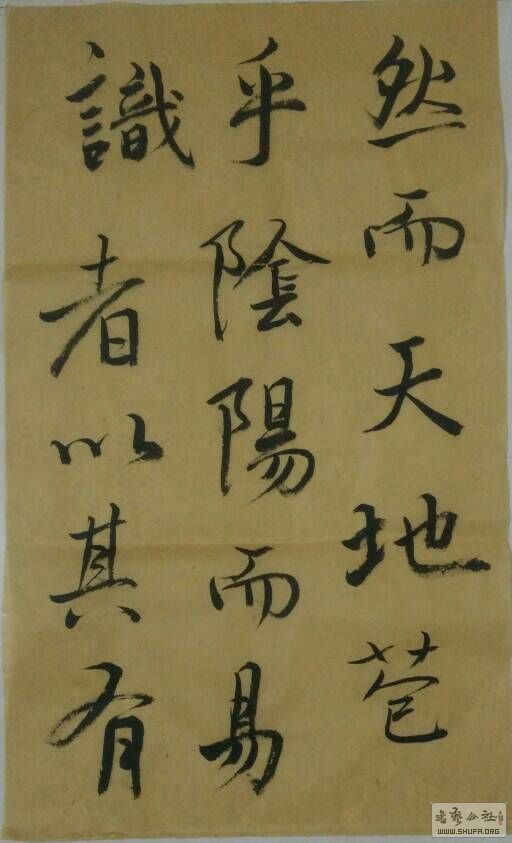 然而天地苞
乎陰陽而易
識者以其有
書藝公社
WWW.SHUFA.ORG